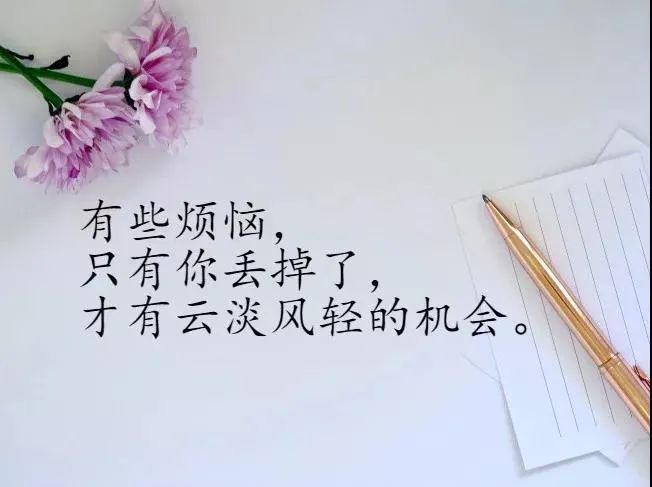 有些烦恼，
只有你丢掉了，
才有云淡风轻的机会。